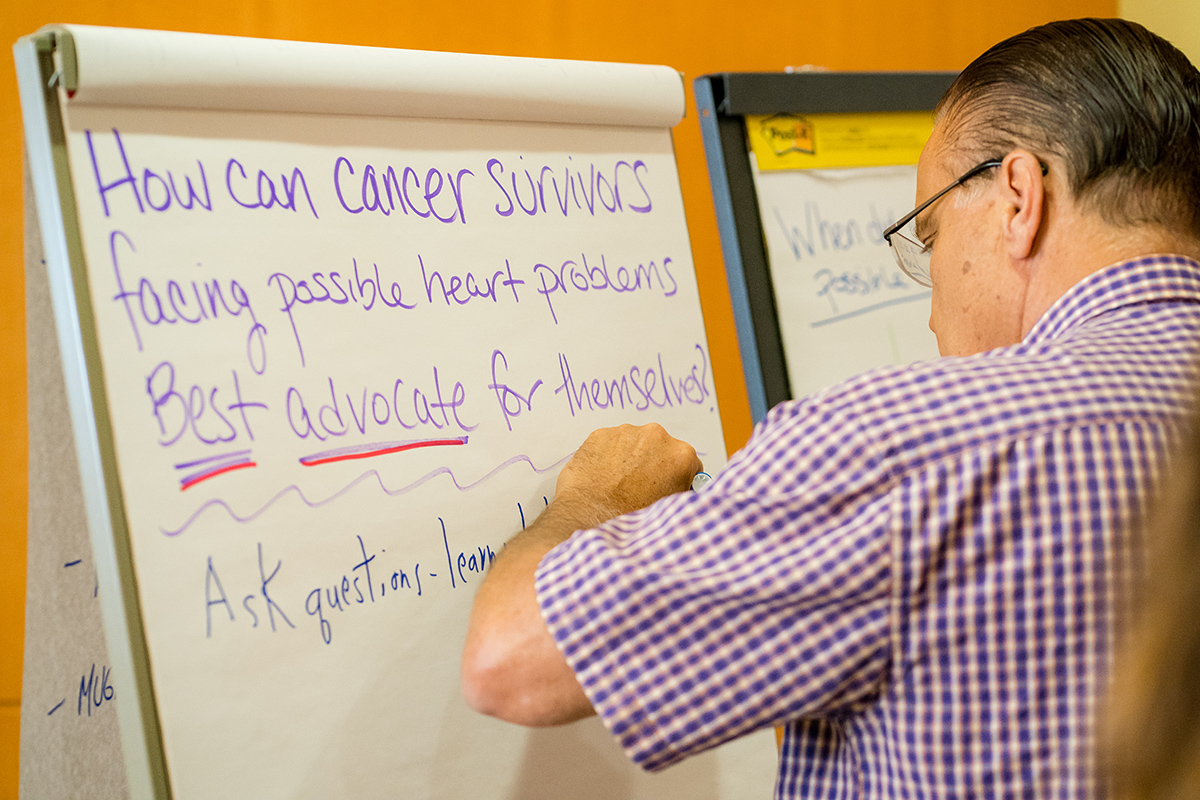 How can cancer survivors
facing possible heart problems
Best advocate for themselves?
Ask questions - learn
Post-it
When
possible
- MUG